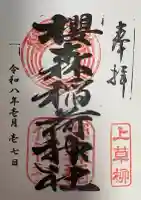 奉拝
櫻森稲荷神社
上草柳
令和八年壱月壱七日